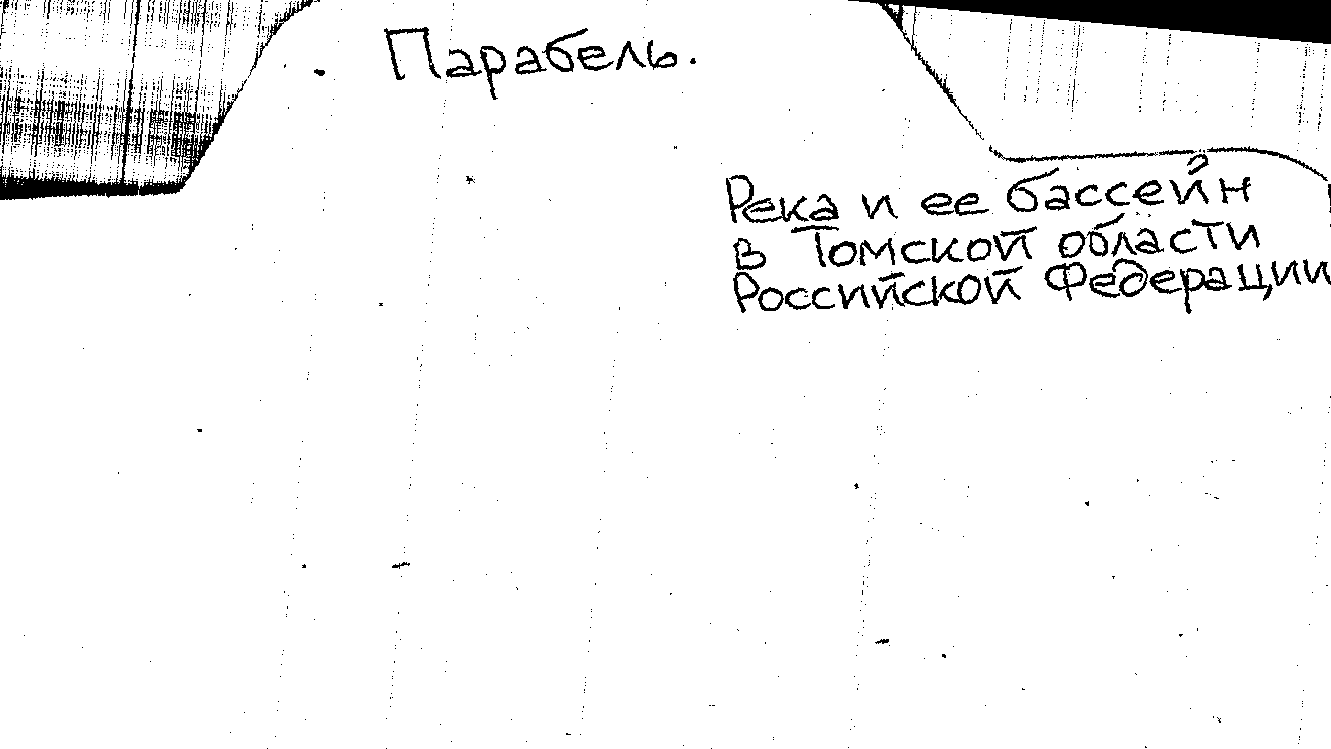 Парабель.
Река и ее бассейн
в Томской области
Российской Федерации